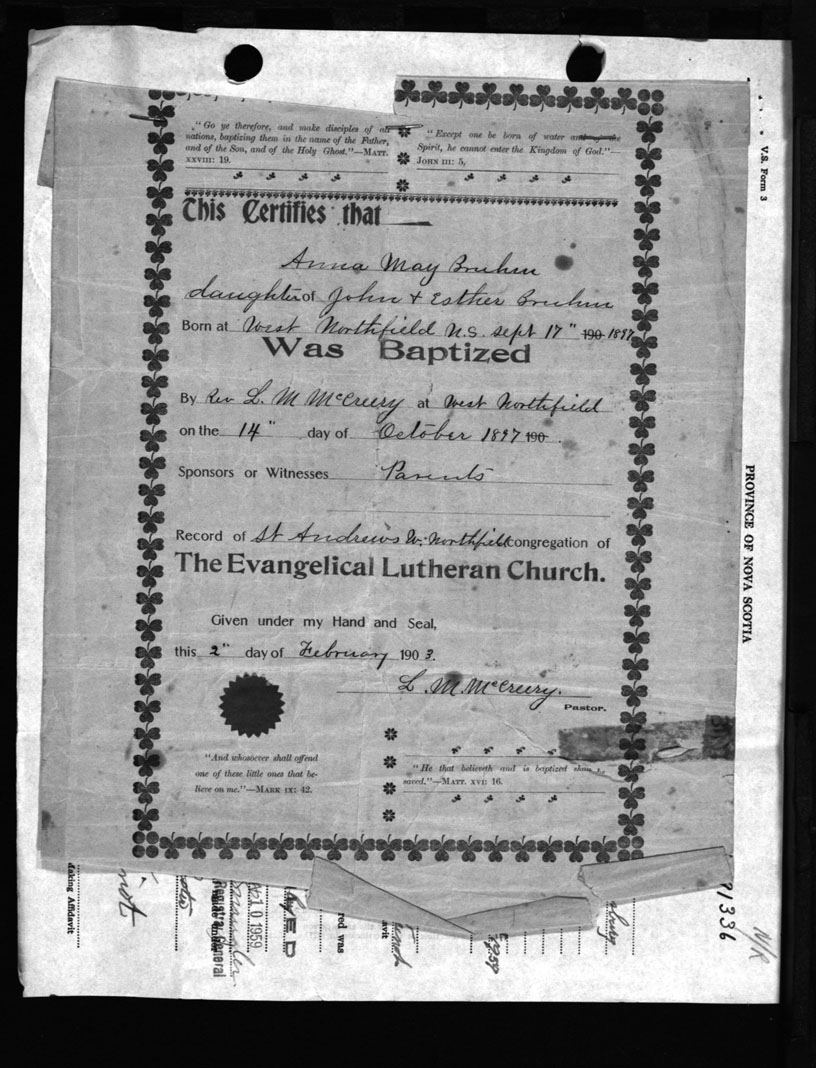 "Go ye therefore, and make disciples of all
nations, baptizing them in the name of the Father,
and of the Son, and of the Holy Ghost."—MATT.
XXVIII: 19.
"Except one be born of water and the
Spirit, he cannot enter the Kingdom of God."—
JOHN III: 5,
This Certifies that
Anna May Bruhm
daughter of John & Esther Bruhm
Born at West Northfield N.S. sept 17" 190 1897
Was Baptized
By Rev L. M McCreery at West Northfield
on the 14" day of October 1897 190 .
Sponsors or Witnesses Parents
Record of St Andrews W. Northfield congregation of
The Evangelical Lutheran Church.
Given under my Hand and Seal,
this 2" day of February 1903.
L. M. McCreery.
Pastor.
"And whosoever shall offend
one of these little ones that be-
lieve on me."—MARK IX: 42.
"He that believeth and is baptized shall be
saved."—MATT. XVI: 16.
V.S. Form 3
PROVINCE OF NOVA SCOTIA
making Affidavit
not
10 1959
Registrar General
ED
red was
avit
1959
91336
N/R